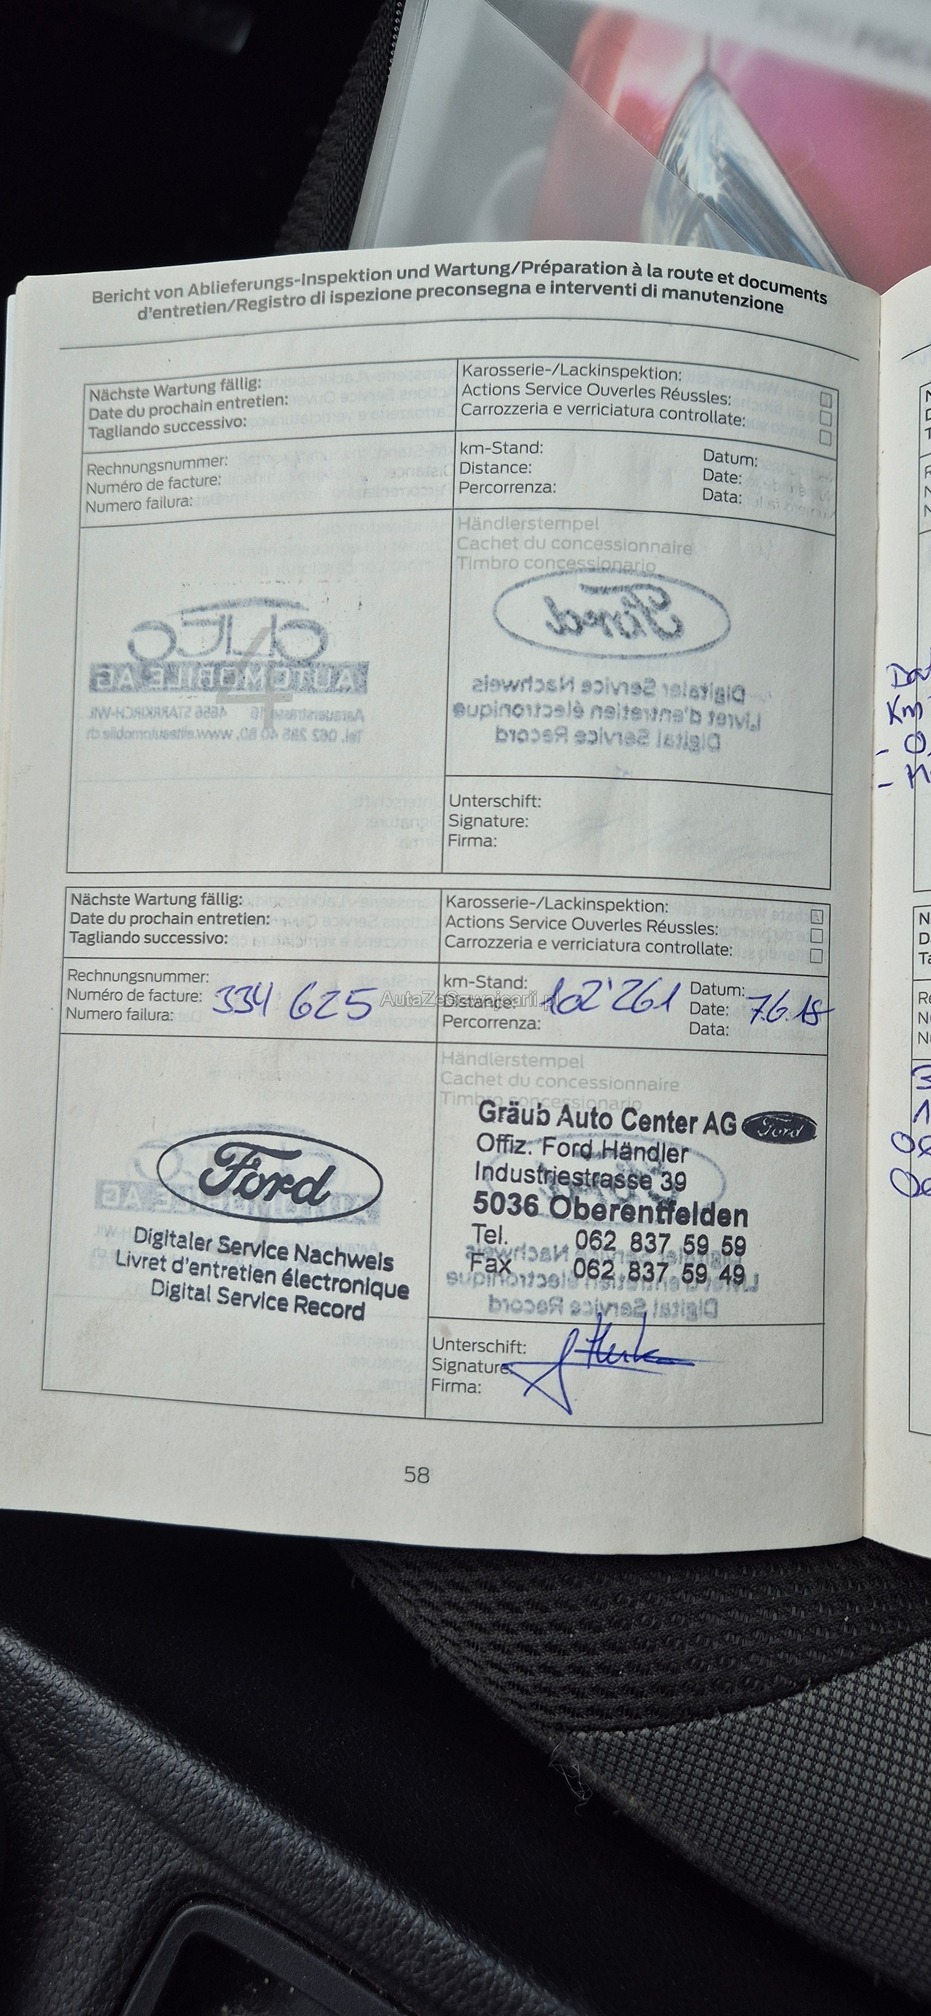 FORD FOCUS
Bericht von Ablieferungs-Inspektion und Wartung/Préparation à la route et documents
d'entretien/Registro di ispezione preconsegna e interventi di manutenzione
Nächste Wartung fällig:
Date du prochain entretien:
Tagliando successivo:
Karosserie-/Lackinspektion:
Actions Service Ouverles Réussles:
Carrozzeria e verriciatura controllate:
Rechnungsnummer:
Numéro de facture:
Numero failura:
km-Stand:
Distance:
Percorrenza:
Datum:
Date:
Data:
Händlerstempel
Cachet du concessionnaire
Timbro concessionario
Ford
AUTOMOBILE AG
Digitaler Service Nachweis
Livret d'entretien électronique
Digital Service Record
Unterschift:
Signature:
Firma:
Nächste Wartung fällig:
Date du prochain entretien:
Tagliando successivo:
Karosserie-/Lackinspektion:
Actions Service Ouverles Réussles:
Carrozzeria e verriciatura controllate:
Rechnungsnummer:
Numéro de facture: 334 625
Numero failura:
km-Stand:
Distance: 102'261
Percorrenza:
Datum:
Date: 7.6.18
Data:
Händlerstempel
Cachet du concessionnaire
Timbro concessionario
Ford
Digitaler Service Nachweis
Livret d'entretien électronique
Digital Service Record
Gräub Auto Center AG Ford
Offiz. Ford Händler
Industriestrasse 39
5036 Oberentfelden
Tel. 062 837 59 59
Fax 062 837 59 49
Unterschift:
Signature:
Firma:
58